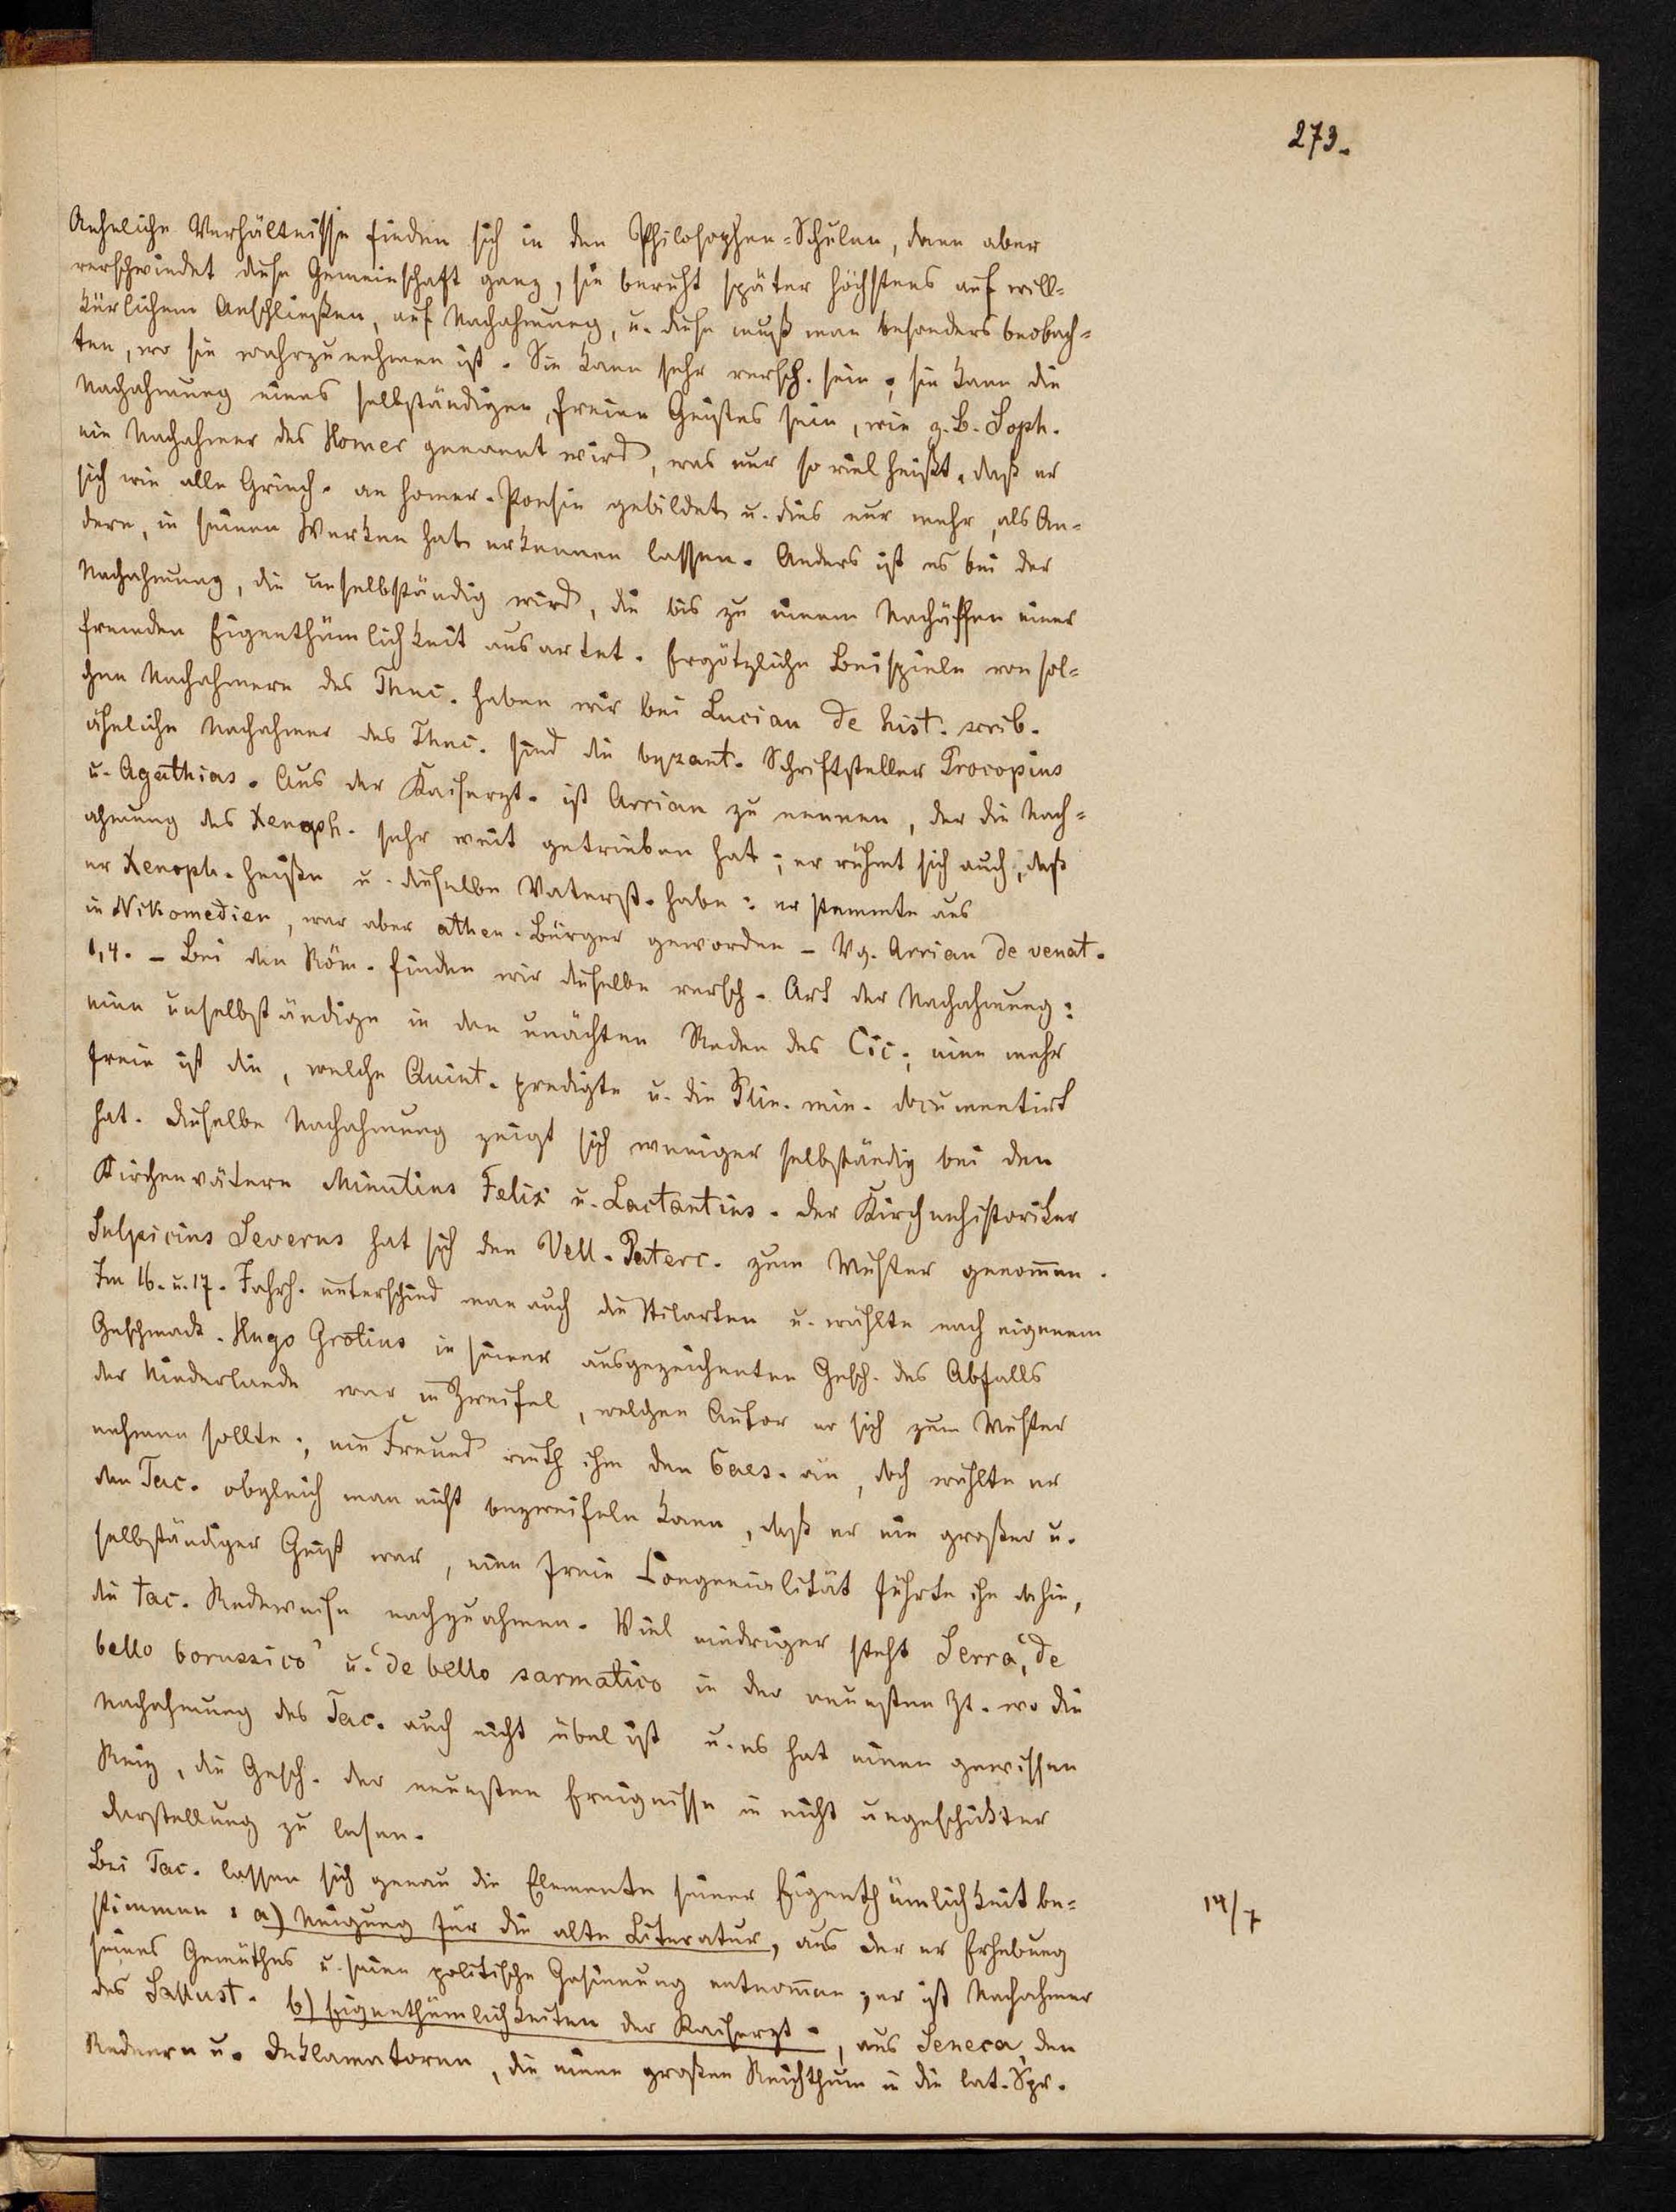 273.
Aehnliche Verhältnisse finden sich in den Philosophen-Schulen, dann aber
verschwindet diese Gemeinschaft ganz, sie beruht später höchstens auf will=
kürlichem Anschließen, auf Nachahmung, u. diese muß man besonders beobach=
ten, wo sie wahrzunehmen ist. Sie kann sehr versch. sein; sie kann die
Nachahmung eines selbständigen, freien Geistes sein, wie z. B. Soph.
ein Nachahmer des Homer genannt wird, was nur so viel heißt, daß er
sich wie alle Griech. an homer. Poesie gebildet u. dies nur mehr, als An=
dere, in seinen Werken hat erkennen lassen. Anders ist es bei der
Nachahmung, die unselbständig wird, die bis zu einem Nachäffen einer
fremden Eigenthümlichkeit ausartet. Ergötzliche Beispiele von sol=
chen Nachahmern des Thuc. haben wir bei Lucian de hist. scrib.
ähnliche Nachahmer des Thuc. sind die byzant. Schriftsteller Procopius
u. Agathias. Aus der Kaiserzt. ist Arrian zu nennen, der die Nach=
ahmung des Xenoph. sehr weit getrieben hat; er rühmt sich auch, daß
er Xenoph. heiße u. dieselbe Vaterst. habe: er stammte aus
in Nikomedien, war aber athen. Bürger geworden – Vg. Arrian de venat.
1,4. – Bei den Röm. finden wir dieselbe versch. Art der Nachahmung:
eine unselbständige in den unächten Reden des Cic; eine mehr
freie ist die, welche Quint. predigte u. die Plin. min. documentirt
hat. dieselbe Nachahmung zeigt sich weniger selbständig bei den
Kirchenvätern Minutius Felix u. Lactantius. der Kirchenhistoriker
Sulpicius Severus hat sich den Vell. Paterc. zum Muster genom̄en.
Im 16. u. 17. Jahrh. unterschied man auch die Stilarten u. wählte nach eigenem
Geschmack. Hugo Grotius in seiner ausgezeichneten Gesch. des Abfalls
der Niederlande war in Zweifel, welchen Autor er sich zum Muster
nehmen sollte; ein Freund rieth ihm den Caes. an, doch wählte er
den Tac. obgleich man nicht bezweifeln kann, daß er ein großer u.
selbständiger Geist war, eine freie Congenialität führte ihn dahin,
die tac. Redeweise nachzuahmen. Viel niedriger steht Serra, ‘de
bello borussico’ u. ‘de bello sarmatico in der neuesten Zt. wo die
Nachahmung des Tac. auch nicht übel ist u. es hat einen gewissen
Reiz, die Gesch. der neuesten Ereignisse in nicht ungeschickter
darstellung zu lesen.
Bei Tac. lassen sich genau die Elemente seiner Eigenthümlichkeit be=
stimmen: a) Neigung für die alte Literatur, aus der er Erhebung
14/7
seines Gemüthes u. seine politische Gesinnung entnom̄en; er ist Nachahmer
des Sallust. b) Eigenthümlichkeiten der Kaiserzt., aus Seneca, den
Rednern u. Deklamatoren, die einen großen Reichthum in die lat. Spr.